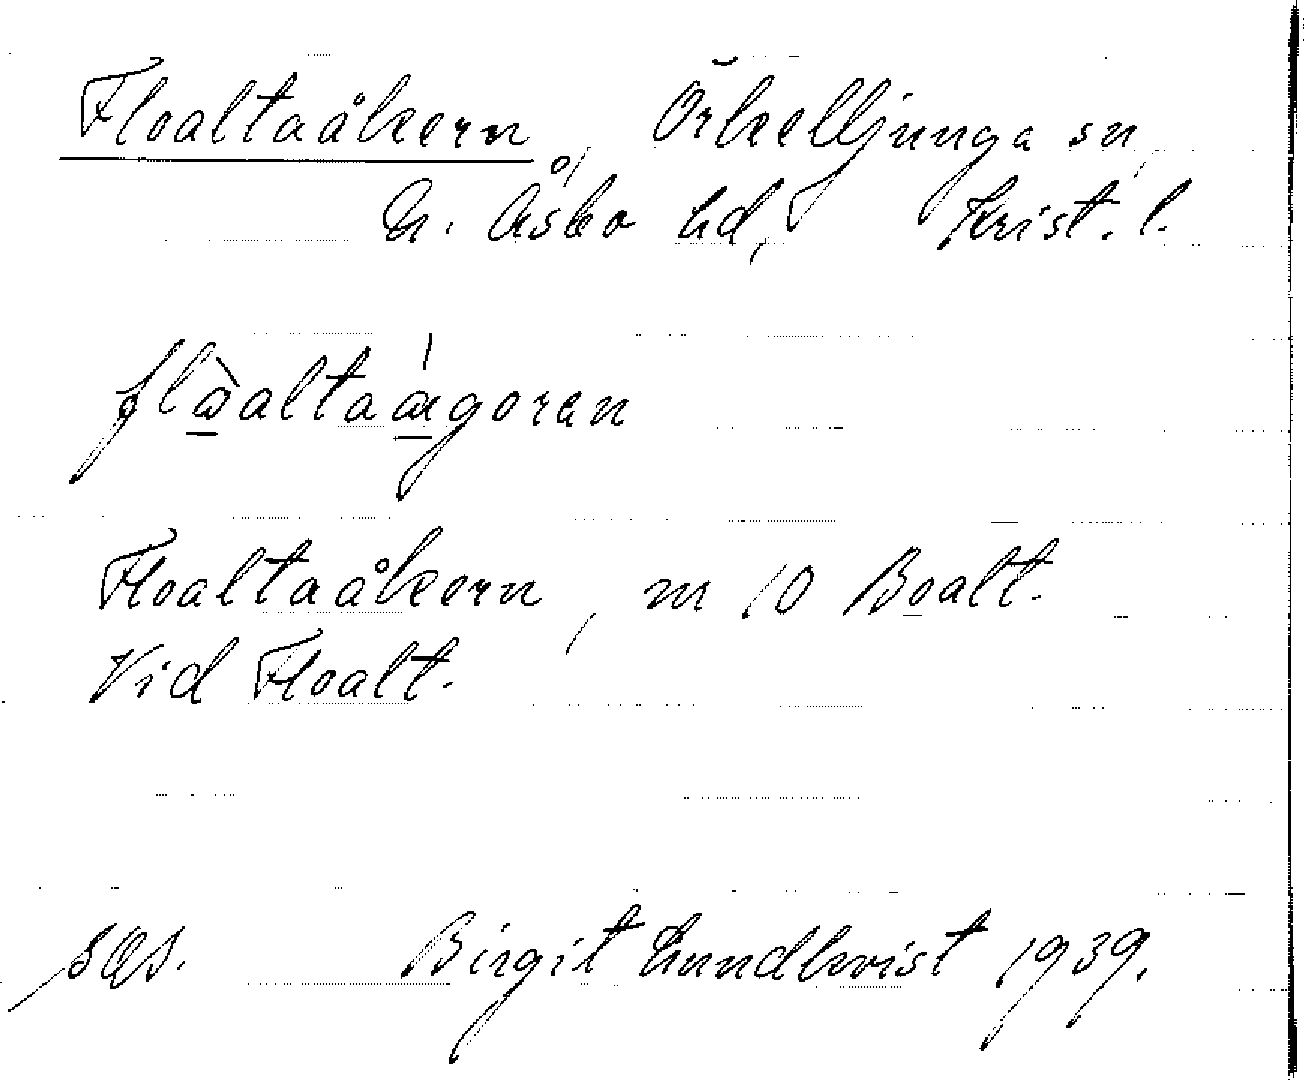 Floaltaåkern, Örkelljunga sn,
N. Åsbo hd, Krist. l.
flàaltaágoran
Floaltaåkern, nr 10 Boalt.
Vid Floalt.
Birgit Lundkvist 1939.